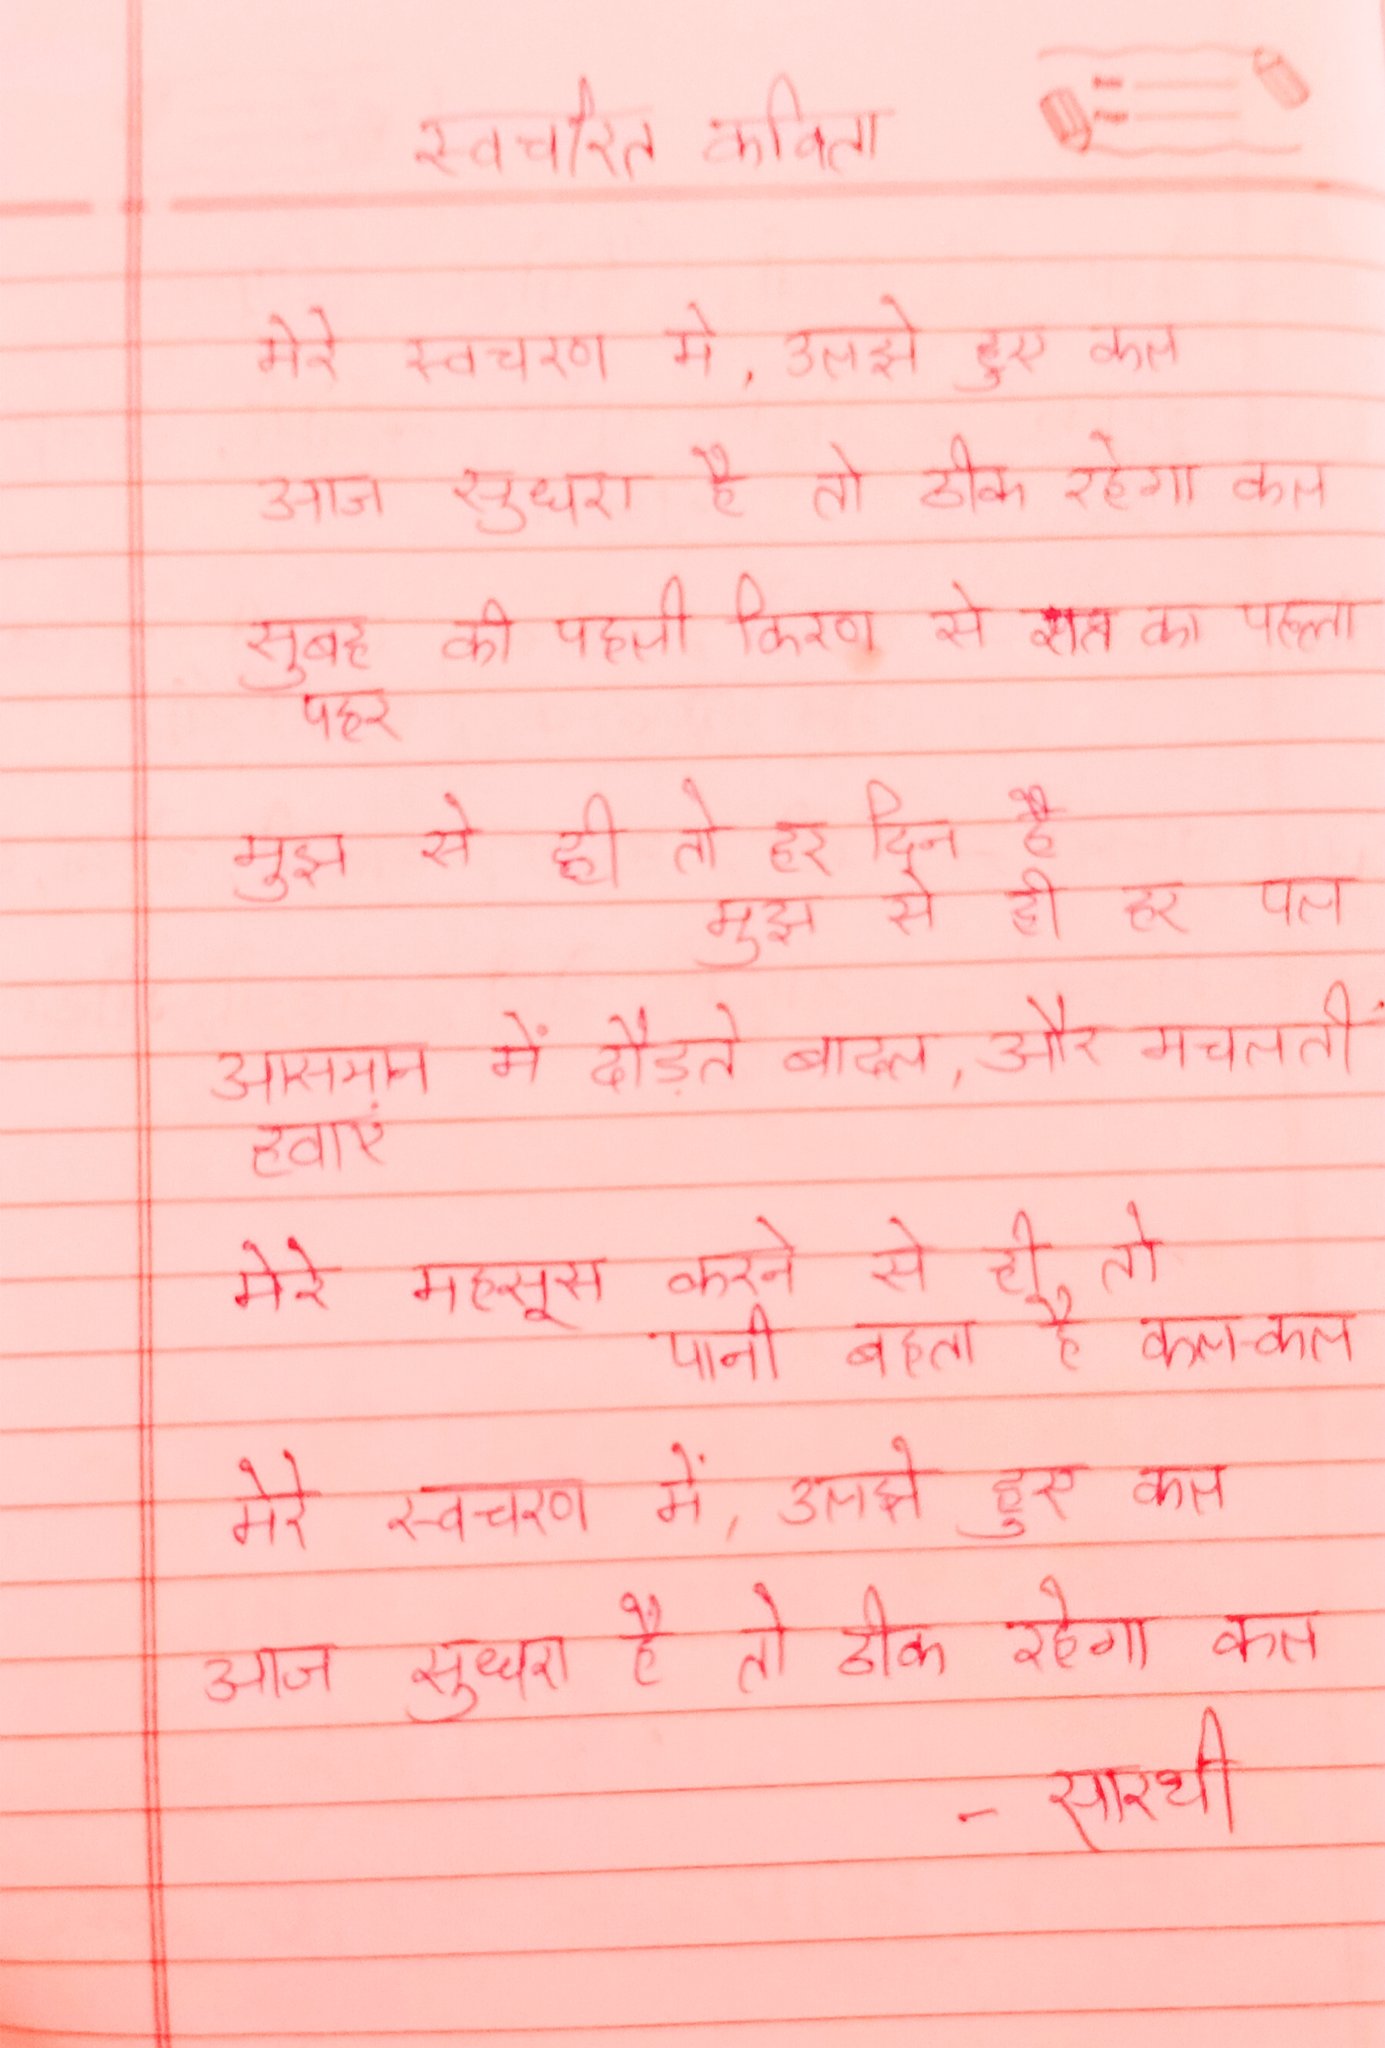 स्वचरित कविता
मेरे स्वचरण मे, उलझे हुए कल
आज सुधरा है तो ठीक रहेगा कल
सुबह की पहली किरण से रात का पहला
पहर
मुझ से ही तो हर दिन है
मुझ से ही हर पल
आसमान में दौड़ते बादल, और मचलती
हवाएं
मेरे महसूस करने से ही, तो
पानी बहता है कल-कल
मेरे स्वचरण में, उलझे हुए कल
आज सुधरा है तो ठीक रहेगा कल
- सारथी